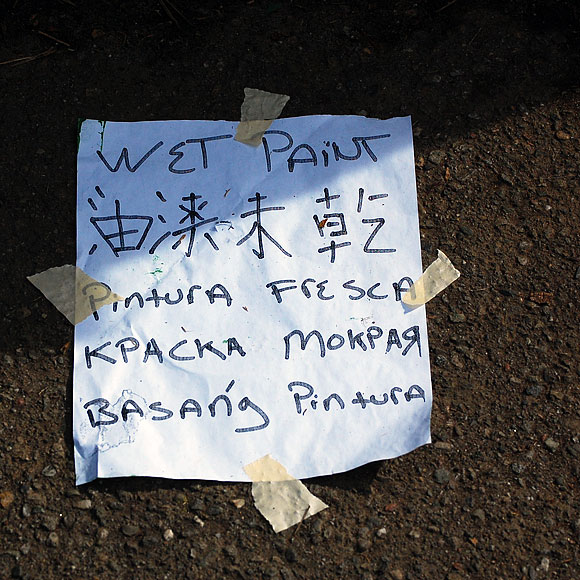 WET PAINT
油漆未乾
PINTURA FRESCA
КРАСКА МОКРАЯ
BASANG PINTURA